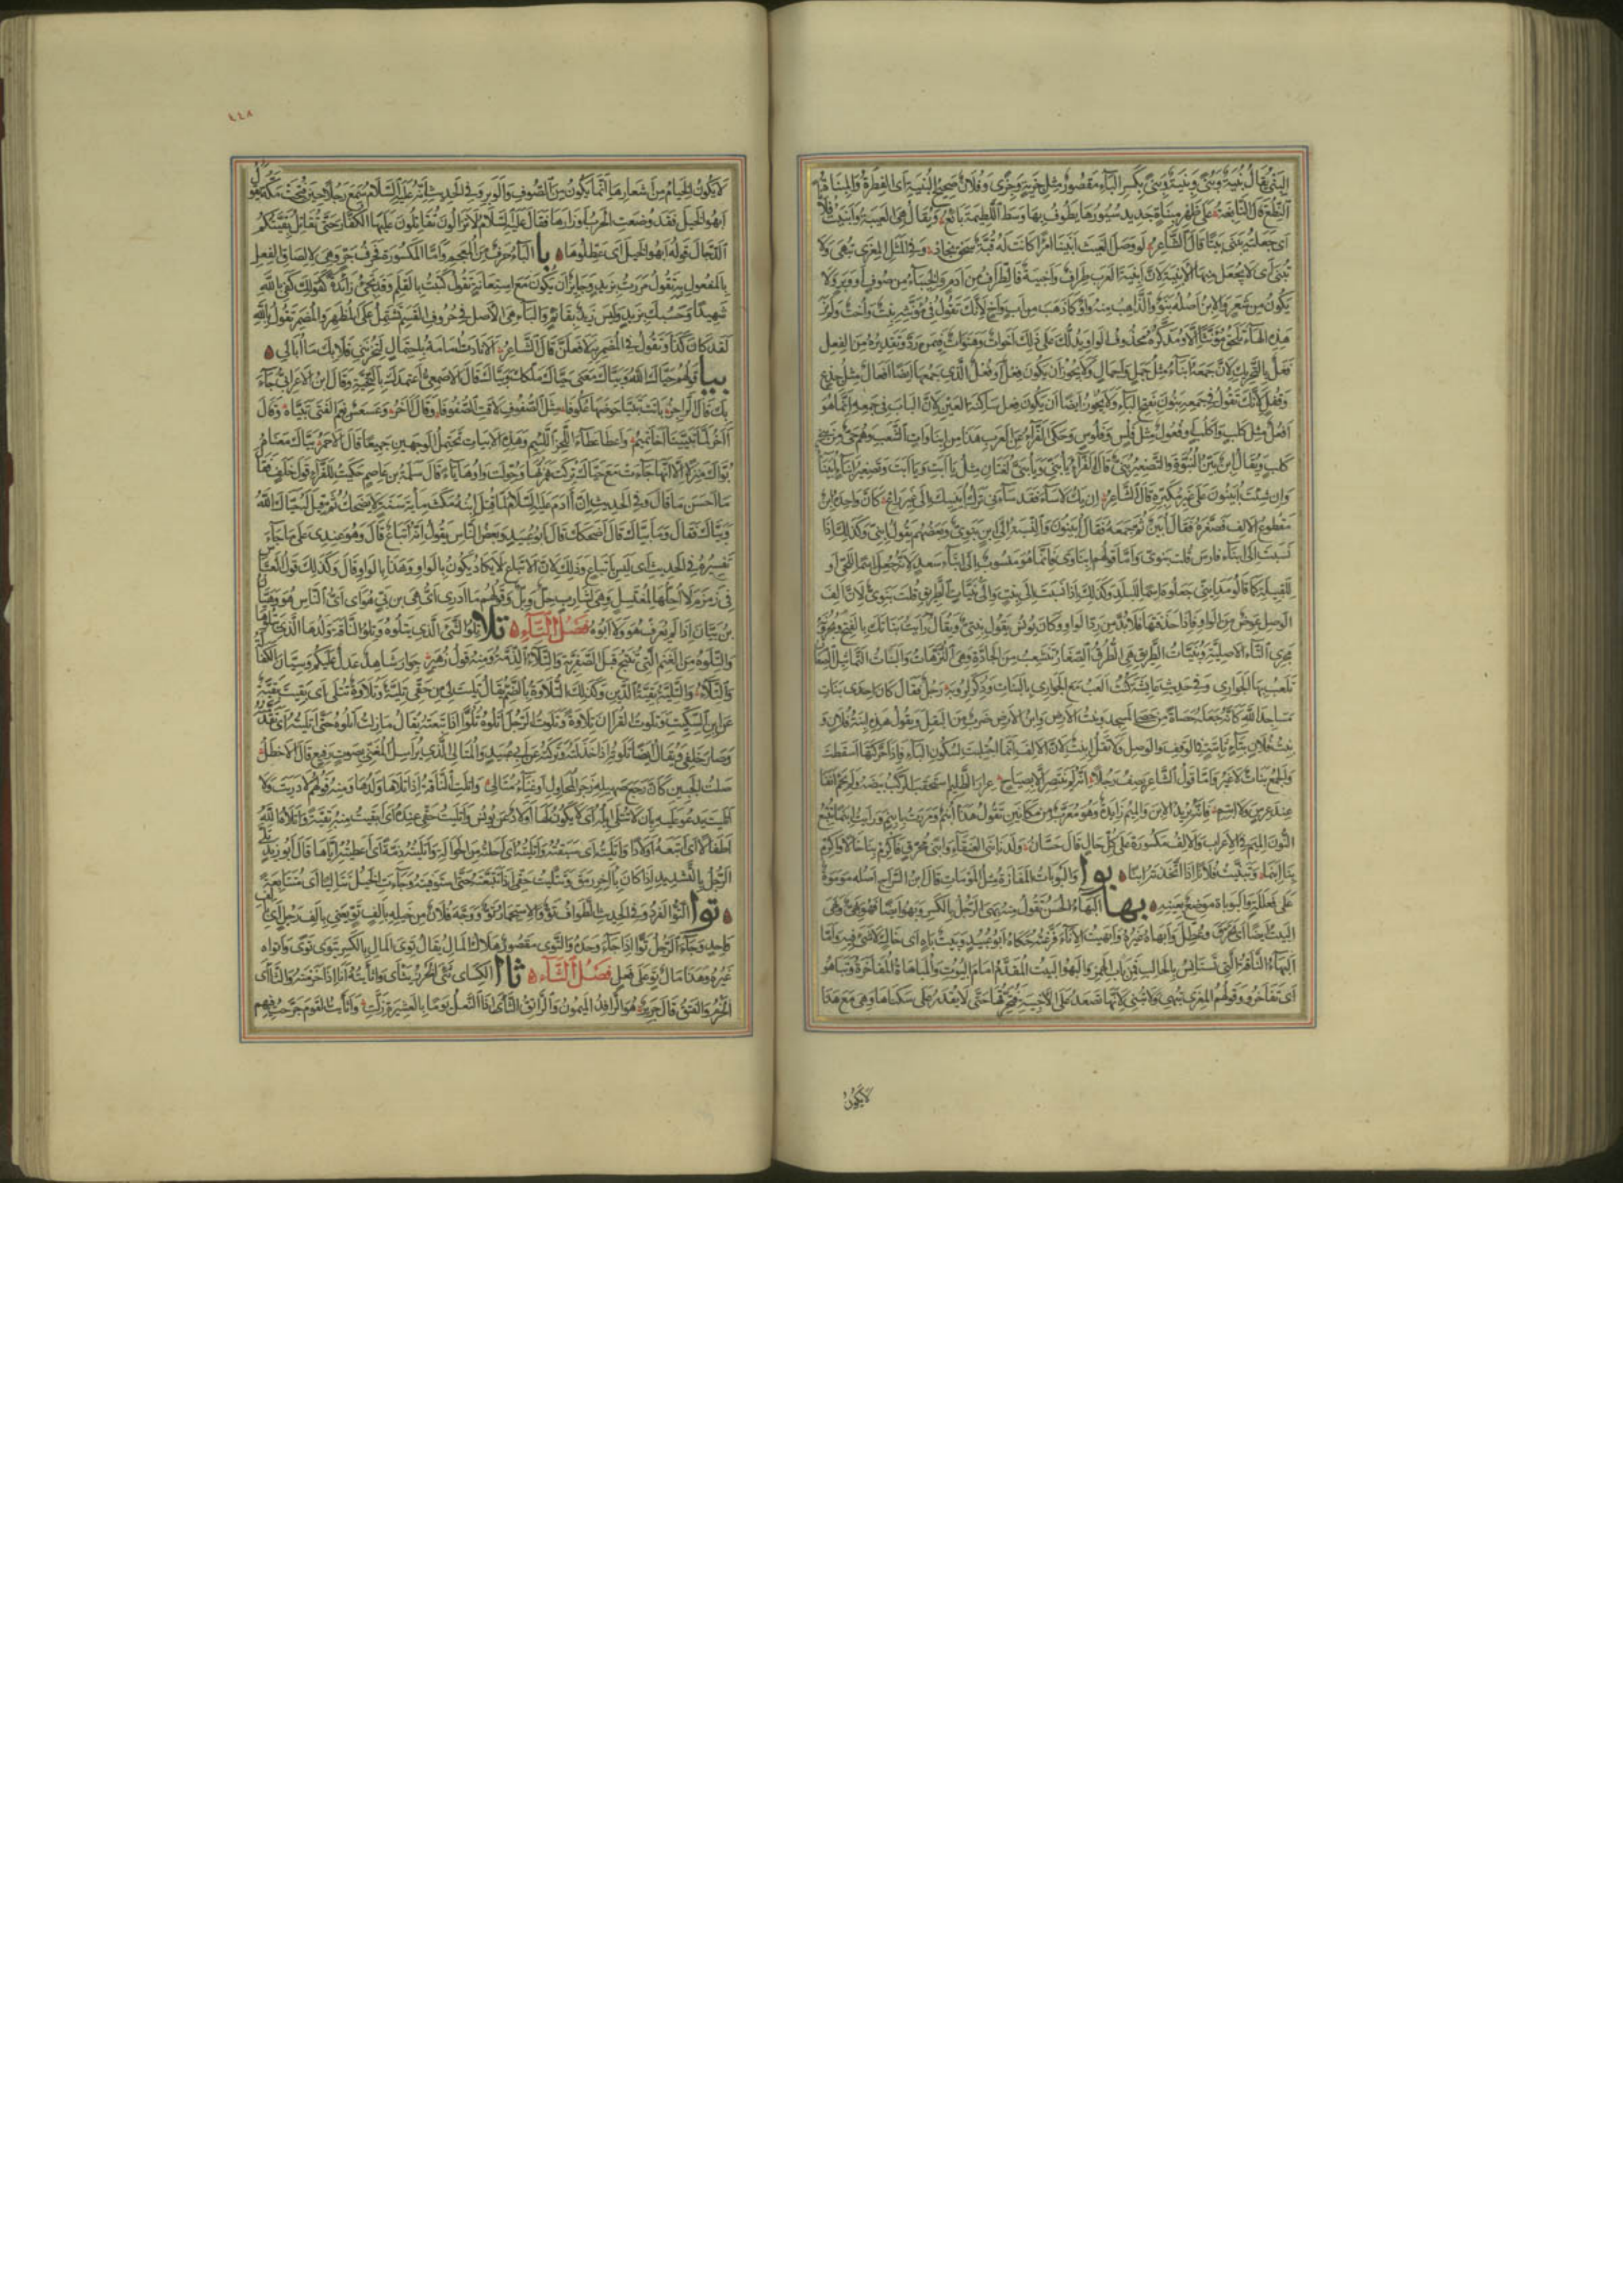 البنى يقال بنية وبنى وبنية وبنى بكسر الباء مقصور مثل جزية وجزى وفلان صحيح البنية اى الفطرة والمبناة
النطع قال النابغة على ظهر مبناة جديد سيورها يطوف بها وسط اللطيمة بائع ويقال هى العيبة وابنيت فلانا
اى جعلته يبنى بيتا قال الشاعر لو وصل الغيث ابنينا امرا كانت له قبة سحق بجاد وفى المثل المعزى تبهى ولا
تبنى اى لا يجعل منها الابنية لان ابنية العرب طراف واخبية فالطراف من ادم والخباء من صوف او وبر ولا
يكون من شعر والابن اصله بنو والذاهب منه واو كما ذهب من اب واخ لانك تقول فى مؤنثه بنت واخت ولم نر
هذه الهاء تلحق مؤنثا الا ومذكره محذوف الواو يدلك على ذلك اخوات وهنوات فيمن رد وتقديره من الفعل
فعل بالتحريك لان جمعه ابناء مثل جمل واجمال ولا يجوز ان يكون فعل او فعل الذى جمعها ايضا افعال مثل جذع
وقفل لانك تقول فى جمعه بنون بفتح الباء ولا يجوز ايضا ان يكون فعل ساكنة العين لان الباب فى جمعه انما هو
افعل مثل كلب واكلب او فعول مثل فلس وفلوس وحكى الفراء عن العرب هذا من ابناوات الشعب وهم حى من
كلب ويقال ابن بين البنوة والتصغير بنى قال الفراء يا بنى ويا بنى لغتان مثل يا ابت ويا ابت وتصغير ابناء ابيناء
وان شئت ابينون على غير مكبره قال الشاعر ان يك لا ساء فقد ساءنى ترك ابينيك الى غير راع كان واحده ابن
مقطوع الالف فصغره فقال ابين ثم جمعه فقال ابينون والنسبة الى ابن بنوى وبعضهم يقول ابنى وكذلك اذا
نسبت الى ابناء فارس قلت بنوى واما قولهم ابناوى فانما هو منسوب الى ابناء سعد لانه جعل اسما للحى او
للقبيلة كما قالوا مداينى جعلوه اسما للبلد وكذلك اذا نسبت الى بنت والى بنيات الطريق قلت بنوى لان الف
الوصل عوض من الواو فاذا حذفتها فلا بد من رد الواو وكان يونس يقول بنتى ويقال رايت بناتك بالفتح
مجرى التاء الاصلية وبنيات الطريق هى الطرق الصغار تتشعب من الجادة وهى الترهات والبنات التماثيل الصغار
تلعب بها الجوارى وفى حديث عايشة كنت العب مع الجوارى بالبنات وذكر لرؤبة رجل فقال كان احدى بنات
مساجد الله كانه جعله حصاة من حصى المسجد وبنت الارض وابن الارض ضرب من البقل ويقول هذه ابنة فلان و
بنت فلان بتاء ثابتة فى الوقف والوصل ولا تقل ابنت لان الالف انما اجتلبت لسكون الباء فاذا حركتها اسقطت
والجمع بنات لا غير واما قول الشاعر يصف رجلا
عند عرس ولا ابنم فانه يريد الابن والميم زايدة وهو معرب من مكانين تقول هذا ابنم ومررت بابنم ورايت ابنما تتبع
النون الميم فى الاعراب والالف مكسورة على كل حال قال حسان ولدنا بنى العنقاء وابنى محرق فاكرم بنا خالا واكرم
بنا ابنما وتبنيت فلانا اذا اتخذته ابنا بوا والبوباة المفازة مثل الموماة قال ابن السراج اصله موموة
على فعللة والبوباة موضع بعينه بها البهاء الحسن تقول منه بهى الرجل بالكسر وبهو ايضا فهو بهى وبهى
البيت ايضا اى تخرق وعطل وابهاه غيره وابهيت الاناء فرغته حكاه ابو عبيد وبيت باه اى خال لا شىء فيه واما
البهاء الناقة التى تستانس بالحالب فمن باب الهمز والبهو البيت المقدم امام البيوت والمباهاة المفاخرة وتباهوا
اى تفاخروا وقولهم المعزى تبهى ولا تبنى لانها تصعد على الاخبية فتخرقها حتى لا يقدر على سكناها وهى مع هذا
لا يكون
٤٤٨
لا يكون الخيام من اشعارها انما يكون من الصوف والوبر وفى الحديث انه عليه السلام سمع رجلا حين فتحت مكة يقول
ابهوا الخيل فقد وضعت الحرب اوزارها فقال عليه السلام لا تزالون تقاتلون عليها الكفار حتى تقاتل بقيتكم
الدجال قوله ابهوا الخيل اى عطلوها با الباء حرف من المعجم واما المكسورة فحرف جر وهى لالصاق الفعل
بالمفعول به تقول مررت بزيد وجايز ان يكون مع استعانة تقول كتبت بالقلم وقد تجىء زائدة كقولك كفى بالله
شهيدا وحسبك بزيد وليس زيد بقائم والباء هى الاصل فى حروف القسم تشتمل على المظهر والمضمر تقول بالله
لقد كان كذا وتقول فى المضمر به لافعلن قال الشاعر الا نادت امامة باحتمال لتحزننى فلا بك ما ابالى
بيا قولهم حياك الله وبياك معنى حياك ملكك وبياك قال الاصمعى اعتمدك بالتحية وقال ابن الاعرابى جاء
بك قال الراجز باتت تبيا حوضها عكوفا مثل الصفوف لاقت الصفوفا وقال آخر وعسعس نعم الفتى تبياه وقال
آخر لما تبيينا اخا تميم واعطا عطاء اللحز اللئيم وهذه الابيات تحتمل الوجهين جميعا قال الاحمر بياك معناه
بواك منزلا الا انها جاءت مع حياك تركت همزتها وحولت واوها ياء قال سلمة بن عاصم حكيت للفراء قول خلف فقال
ما احسن ما قال وفى الحديث ان آدم عليه السلام لما قتل ابنه مكث ماية سنة لا يضحك ثم قيل له حياك الله
وبياك فقال وما بياك قال اضحكك قال ابو عبيد وبعض الناس يقول انه اتباع قال وهو عندى على ما جاء
تفسيره فى الحديث اى ليس باتباع وذلك لان الاتباع لا يكاد يكون بالواو وهذا بالواو قال وكذلك قول العباس
فى زمزم لا احلها لمغتسل وهى لشارب حل وبل وقولهم ما ادرى اى هى بن بى هو اى اى الناس هو وهيان
بن بيان اذا لم يعرف هو ولا ابوه فصل التاء تلا تلو الشىء الذى يتلوه وتلو الناقة ولدها الذى يتلوها
والتلوة من الغنم التى تنتج قبل الصفرية والتلاء الذمة ومنه قول زهير جوار شاهد عدل عليكم وسيان الكفالة
والتلاء والتلية بقية الدين وكذلك التلاوة بالضم يقال تليت لى من حقى تلية وتلاوة تتلى اى بقيت بقية
عن ابن السكيت وتلوت القران تلاوة وتلوت الرجل اتلوه تلوا اذا تبعته يقال ما زلت اتلوه حتى اتليته اى تقدمته
وصار خلفى ويقال ايضا تلوته اذا خذلته وتركته عن ابى عبيد والمتالى الذى يراسل المغنى بصوت رفيع قال الاخطل
صلت الجبين كان رجع صهيله زجر المحاول او غناء متال واتلت الناقة اذا تلاها ولدها ومنه قولهم لا دريت ولا
اتليت يدعو عليه بان لا تتلى ابله اى لا يكون لها اولاد عن يونس واتليت حقى عنده اى ابقيت منه بقية واتلاه الله
اطفالا اى اتبعه اولادا واتليته اى سبقته واتليته اى احلته من الحوالة واتليته ذمة اى اعطيته اياها قال ابو زيد تلى
الرجل بالتشديد اذا كان بآخر رمق وتتليت حقى اذا تتبعته حتى تستوفيه وجاءت الخيل تتاليا اى متتابعة
توا التو الفرد وفى الحديث الطواف تو والاستجمار تو ووجه فلان من خيله بالف تو يعنى بالف رجل اى بالف
واحد وجاء الرجل توا اذا جاء وحده والتوى مقصور هلاك المال يقال توى المال بالكسر يتوى توى واتواه
غيره وهذا مال تو على فعل فصل الثاء ثاا الكساى ثئى الخرز يثأى واثأيته انا اذا خرمته والثأى
الخرم والفتق قال جرير هو الوافد الميمون والراتق الثأى اذا النعل يوما بالعشيرة زلت واثأيت القوم جرحت فيهم